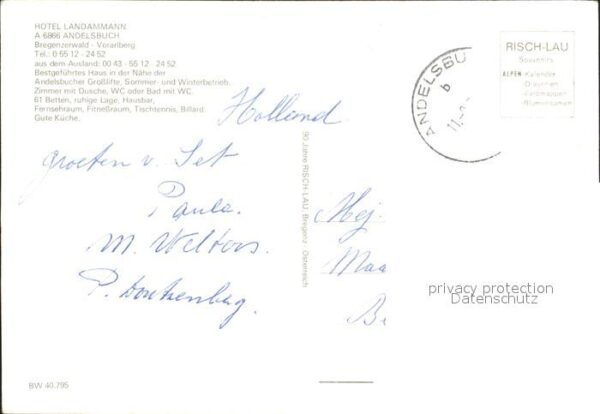 HOTEL LANDAMMANN
A 6866 ANDELSBUCH
Bregenzerwald - Vorarlberg
Tel.: 0 55 12 - 24 52
aus dem Ausland: 00 43 - 55 12 - 24 52
Bestgeführtes Haus in der Nähe der
Andelsbucher Großlifte, Sommer- und Winterbetrieb.
Zimmer mit Dusche, WC oder Bad mit WC.
61 Betten, ruhige Lage, Hausbar,
Fernsehraum, Fitneßraum, Tischtennis, Billard.
Gute Küche.
Holland
groeten v. Set
Paula.
M. Welters.
P.
BW 40.795
90 Jahre RISCH-LAU, Bregenz - Österreich
ANDELSBU
6
11.
RISCH-LAU
Souvenirs
ALPEN-Kalender
-Blumensamen
Mej.
Maa
Be
privacy protection
Datenschutz